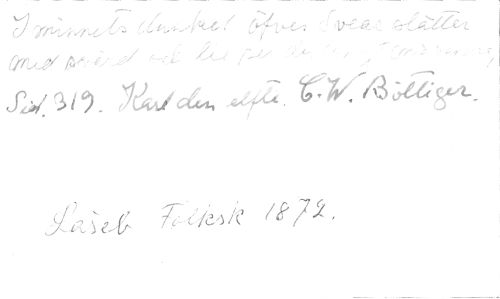 I minnets dunkel öfver Sveas slätter
med svärd och
Sid. 319. Karl den elfte. C. W. Böttiger.
Läseb Folksk 1872.